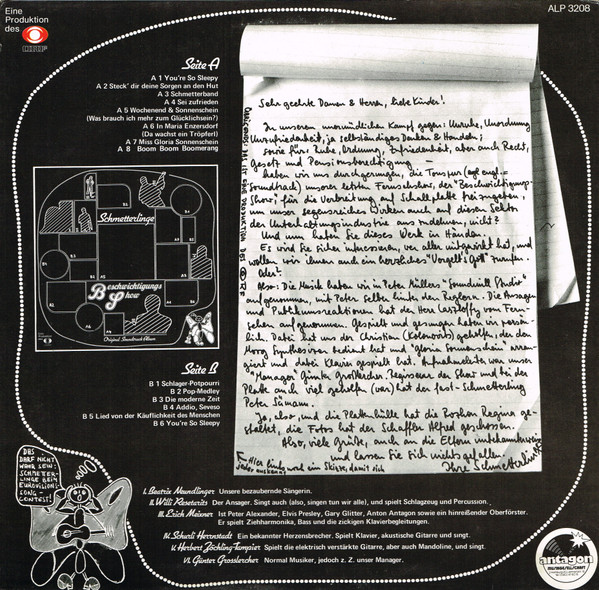 Eine
Produktion
des
ORF
ALP 3208
Seite A
A 1 You're So Sleepy
A 2 Steck' dir deine Sorgen an den Hut
A 3 Schmetterband
A 4 Sei zufrieden
A 5 Wochenend & Sonnenschein
(Was brauch ich mehr zum Glücklichsein?)
A 6 In Maria Enzersdorf
(Da wachst ein Tröpferl)
A 7 Miss Gloria Sonnenschein
A 8 Boom Boom Boomerang
Schmetterlinge
Beschwichtigungs
Show
Original Soundtrack-Album
Seite B
B 1 Schlager-Potpourri
B 2 Pop-Medley
B 3 Die moderne Zeit
B 4 Addio, Seveso
B 5 Lied von der Käuflichkeit des Menschen
B 6 You're So Sleepy
Sehr geehrte Damen & Herrn, liebe Kinder!
In unserem unermüdlichen Kampf gegen: Unruhe, Unordnung
Unzufriedenheit, ja selbständiges Denken & Handeln;
sowie für: Ruhe, Ordnung, Zufriedenheit, aber auch Recht,
Gesetz und Pensionsberechtigung —
haben wir uns durchgerungen, die Tonspur (auf engl.=
Soundtrack) unserer letzten Fernsehshow, der "Beschwichtigungs-
Show", für die Verbreitung auf Schallplatte freizugeben,
um unser segensreiches Wirken auch auf diesen Sektor
der Unterhaltungsindustrie auszudehnen, nicht?
Und nun haben Sie dieses Werk in Händen.
Es wird Sie sicher interessieren, wer aller mitgewirkt hat, und
wollen wir ihnen auch ein herzliches "Vergelt's Gott" zurufen.
Oder?
Also: Die Musik haben wir in Peter Müllers "Soundmill Studio"
aufgenommen, mit Peter selber hinter den Reglern. Die Ansagen
und Publikumsreaktionen hat der Herr vom Fern-
sehen aufgenommen. Gespielt und gesungen haben wir persön-
lich. Dabei hat uns der Christian (Kolonovits) geholfen, der den
Moog Synthesizer bedient hat und Gloria Sonnenschein arran-
giert und dabei Klavier gespielt hat. Aufnahmeleiter war unser
Manager Günter Großlercher. Regisseur der Show und bei der
Platte auch viel geholfen (war) hat der fast-Schmetterling
Peter Sämann.
Ja, also, und die Plattenhülle hat die Regina ge-
staltet, die Fotos hat der Schaffler Alfred geschossen.
Also, viele Grüße, auch an die Eltern unbekannterweise
und lassen Sie sich nichts gefallen.
Ihre Schmetterlinge
DAS
DARF NICHT
WAHR SEIN:
SCHMETER-
LINGE BEIM
EUROVISION-
SONG-
CONTEST!
I. Beatrix Neundlinger Unsere bezaubernde Sängerin.
II. Willi Resetarits Der Ansager, Singt auch (also, singen tun wir alle), und spielt Schlagzeug und Percussion.
III. Erich Meixner Ist Peter Alexander, Elvis Presley, Gary Glitter, Anton Antagon sowie ein hinreißender Oberförster.
Er spielt Ziehharmonika, Bass und die zickigen Klavierbegleitungen.
IV. Schurli Herrnstadt Ein bekannter Herzensbrecher. Spielt Klavier, akustische Gitarre und singt.
V. Herbert Zöchling-Tampier Spielt die elektrisch verstärkte Gitarre, aber auch Mandoline, und singt.
VI. Günter Grosslercher Normal Musiker, jedoch z. Z. unser Manager.
antagon
MUSIKGESELLSCHAFT